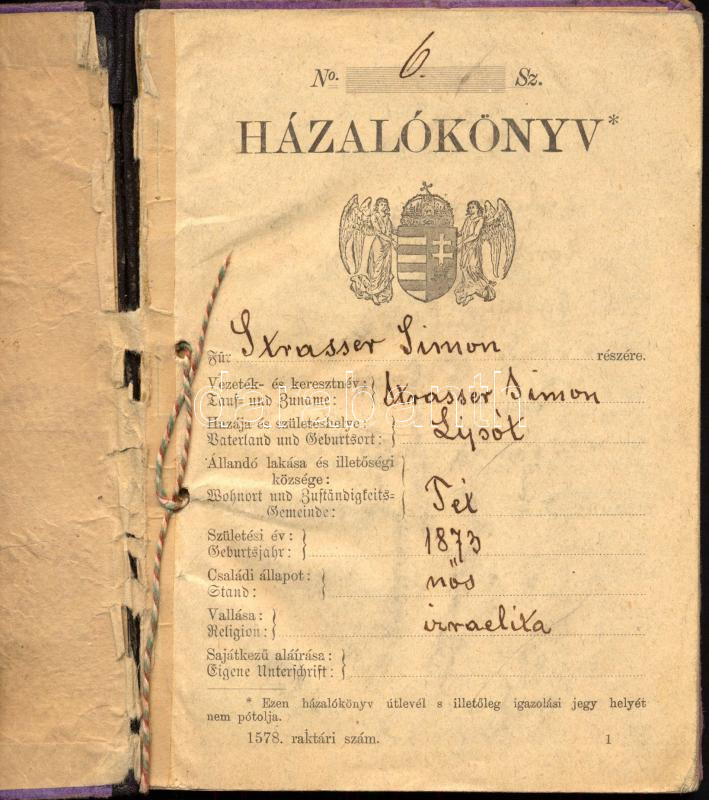 No. 6. Sz.
HÁZALÓKÖNYV*
Für Strasser Simon részére.
Vezeték- és keresztnév: Strasser Simon
Tauf- und Zuname:
Hazája és születéshelye: Lipót
Vaterland und Geburtsort:
Állandó lakása és illetőségi
községe:
Wohnort und Zuständigkeits-
Gemeinde: Tét
Születési év: 1873
Geburtsjahr:
Családi állapot: nős
Stand:
Vallása: izraelita
Religion:
Sajátkezű aláírása:
Eigene Unterschrift:
* Ezen házalókönyv útlevél s illetőleg igazolási jegy helyét
nem pótolja.
1578. raktári szám. 1
darabanth